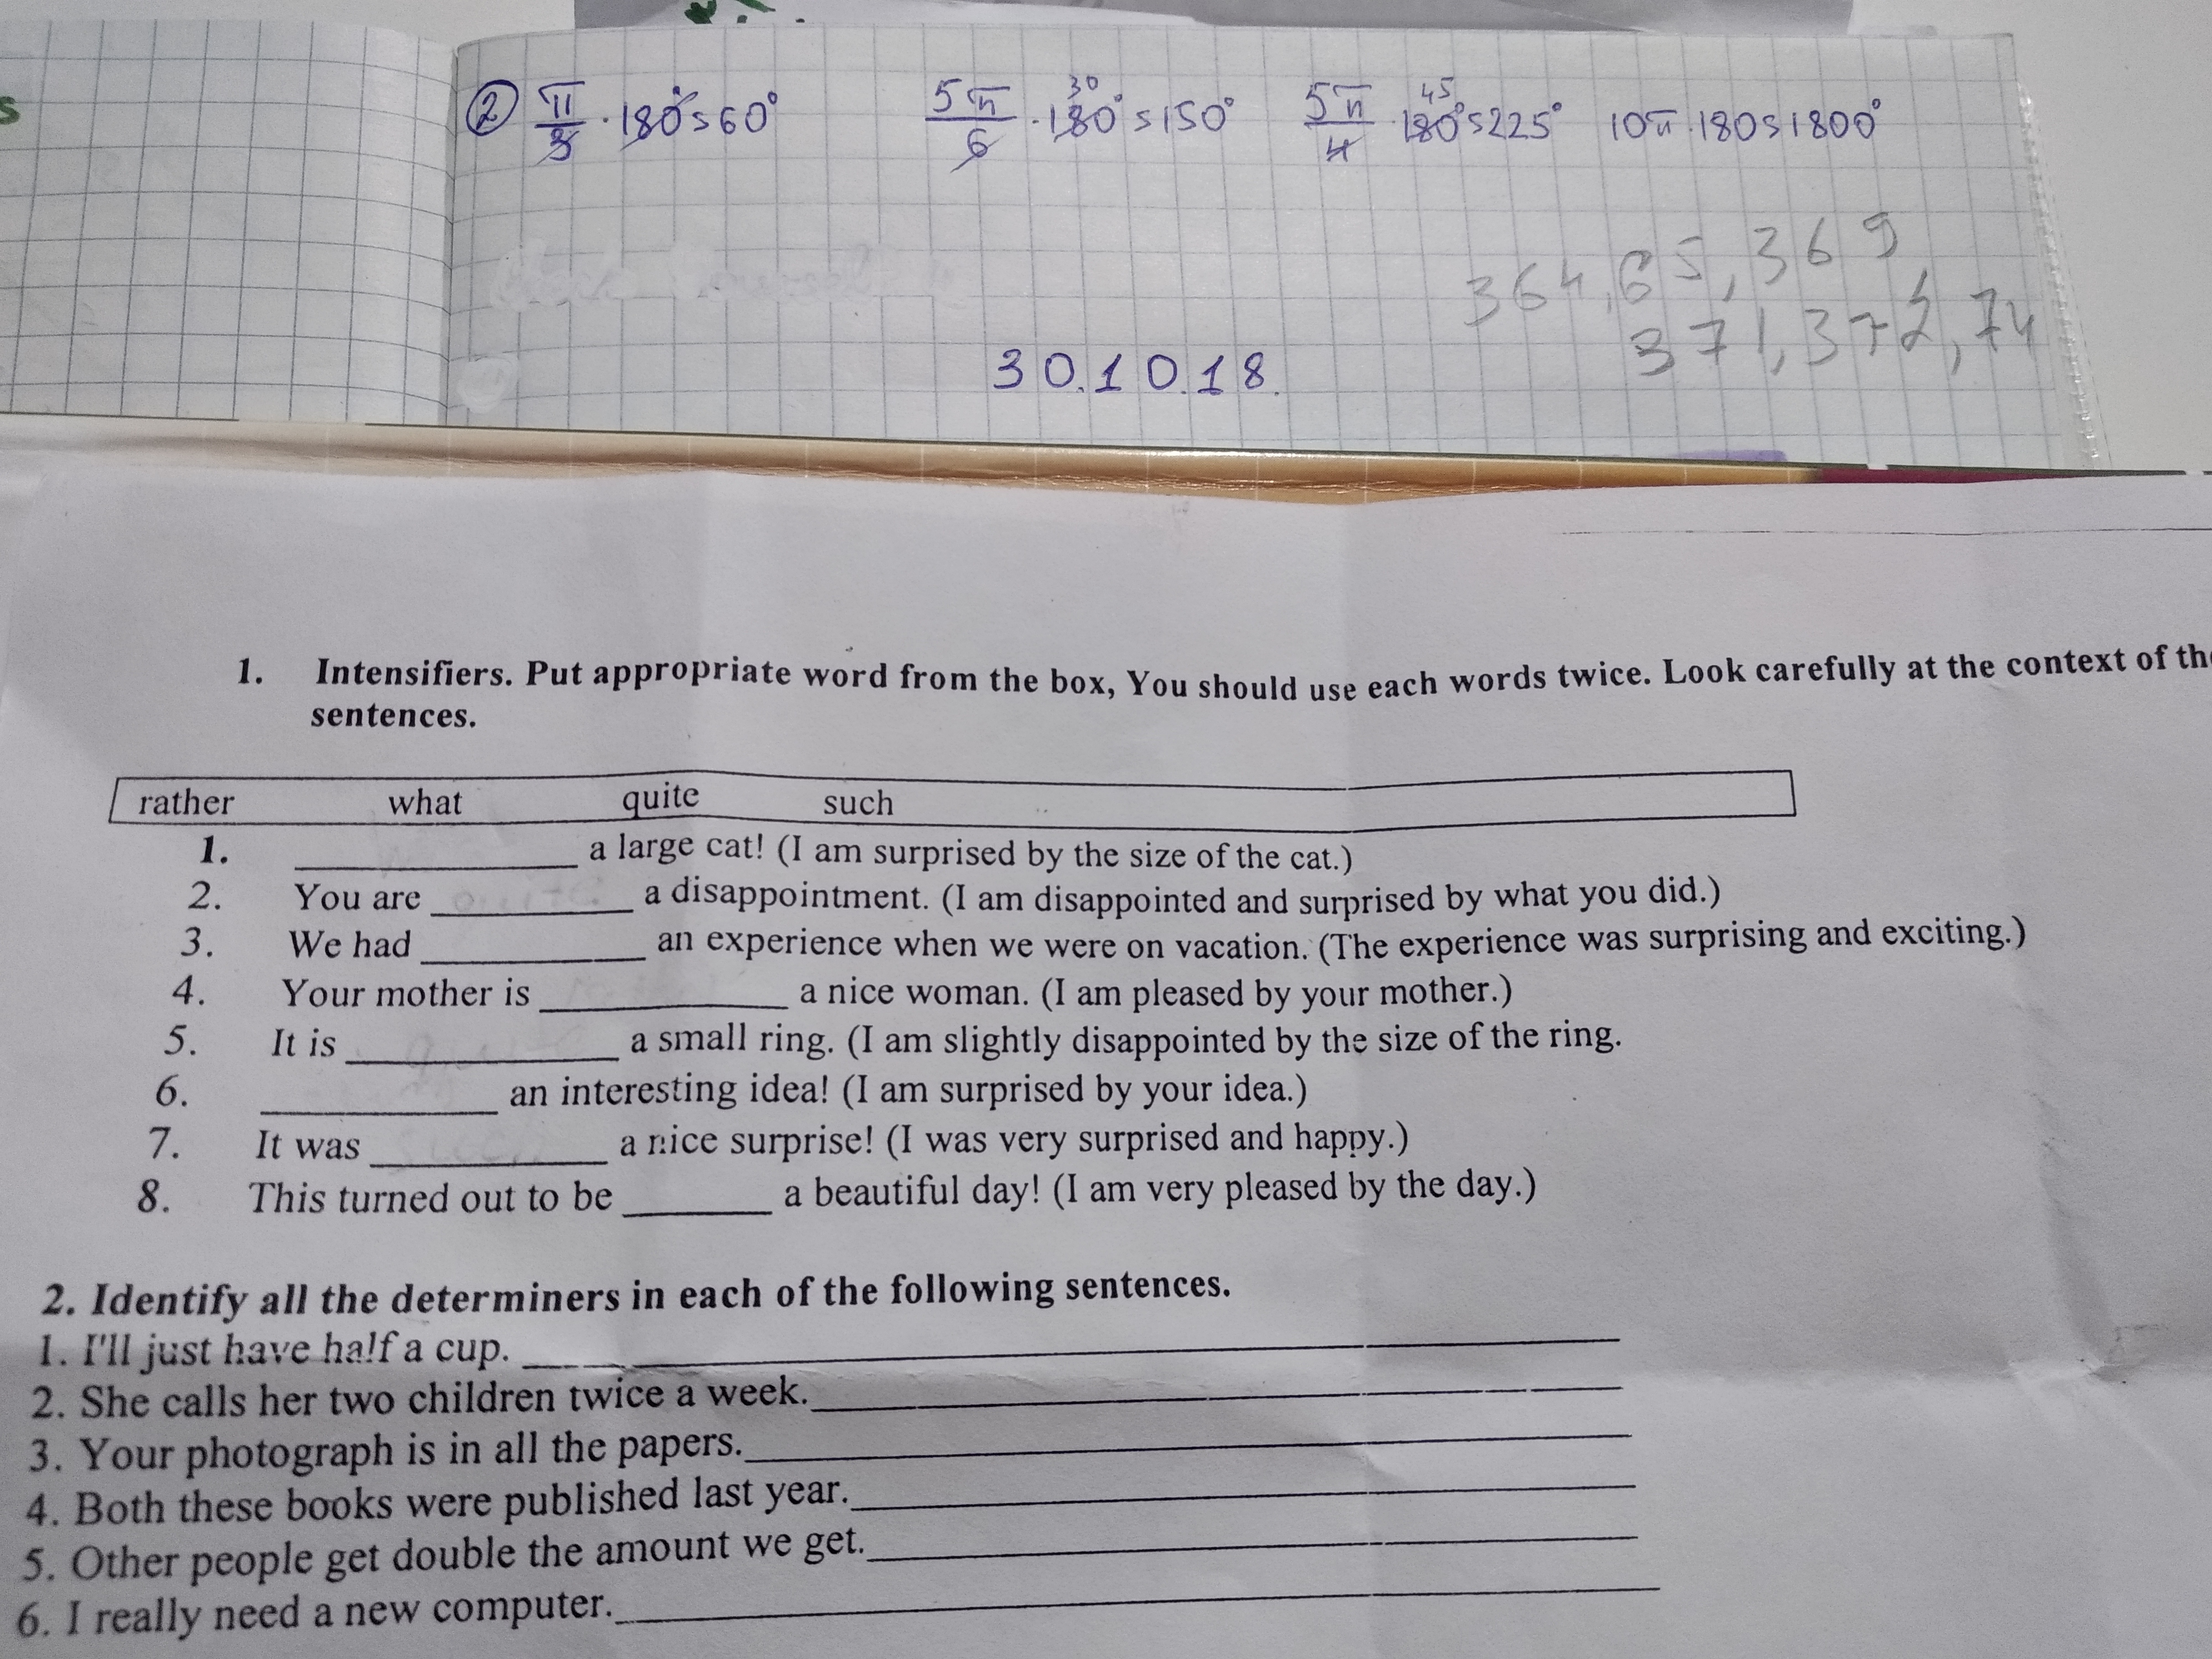 s
② π/3 · 180° s 60° 5π/6 · 180° 30 s 150° 5π/4 · 180° 45 s 225° 10π · 180 s 1800°
364, 65, 369,
371, 372, 74
30.10.18.
1. Intensifiers. Put appropriate word from the box, You should use each words twice. Look carefully at the context of the
sentences.
rather what quite such
1. ____________ a large cat! (I am surprised by the size of the cat.)
2. You are ____________ a disappointment. (I am disappointed and surprised by what you did.)
3. We had ____________ an experience when we were on vacation. (The experience was surprising and exciting.)
4. Your mother is ____________ a nice woman. (I am pleased by your mother.)
5. It is ____________ a small ring. (I am slightly disappointed by the size of the ring.
6. ____________ an interesting idea! (I am surprised by your idea.)
7. It was ____________ a nice surprise! (I was very surprised and happy.)
8. This turned out to be ________ a beautiful day! (I am very pleased by the day.)
2. Identify all the determiners in each of the following sentences.
1. I'll just have half a cup. ____________
2. She calls her two children twice a week.____________
3. Your photograph is in all the papers.____________
4. Both these books were published last year.____________
5. Other people get double the amount we get.____________
6. I really need a new computer.____________